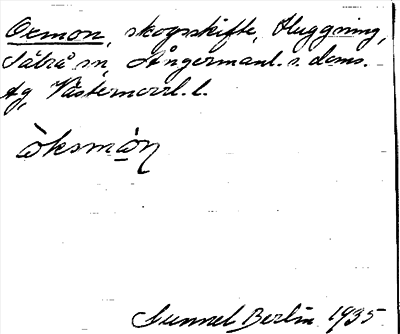 Oxmon, skogsskifte, Huggning,
Säbrå sn, Ångermanl. s. doms.
tg, Västernorrl. l.
òksmòn
Gunnel Berlin 1935